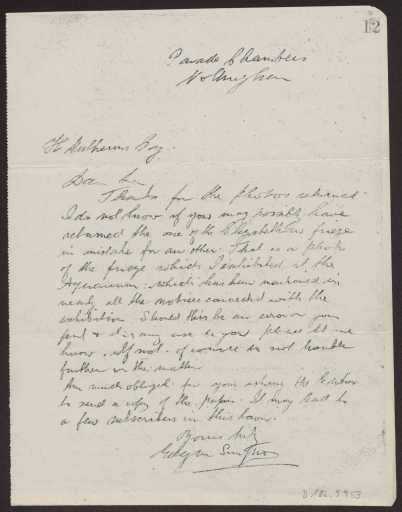 12
Parade Chambers
Nottingham
Dear Sir
Thanks for the photos returned
I do not know if you may possibly have
returned the one of the Elizabethan frieze
in mistake for another. That is a photo
of the frieze which I exhibited at the
which has been mentioned in
nearly all the notices connected with the
exhibition. Should this be an error on your
part & it is in use do you please let me
know. If not of course do not trouble
further in the matter
Am much obliged for your asking the Editor
to send a copy of the paper. It may lead to
a few subscribers in this town.
Yours truly